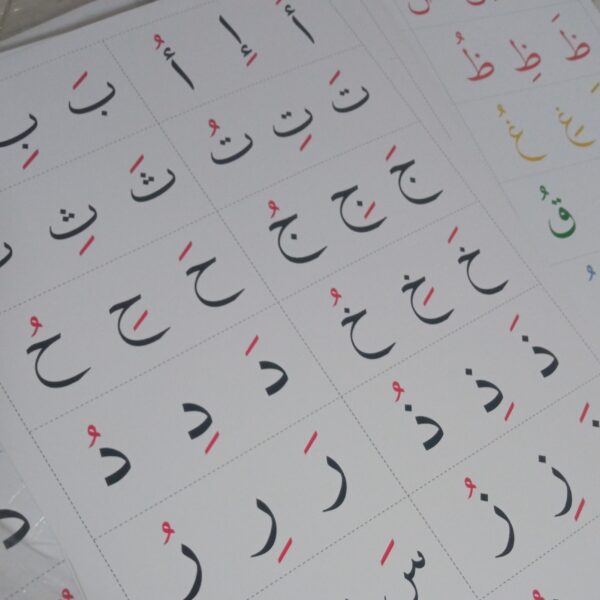 أَ إِ أُ بَ بِ
تَ تِ تُ ثَ ثِ
جَ جِ جُ حَ حِ حُ
خَ خِ خُ دَ دِ دُ
ذَ ذِ ذُ رَ رِ رُ
زِ زُ سَ
ظَ ظِ ظُ
غِ غُ
قُ